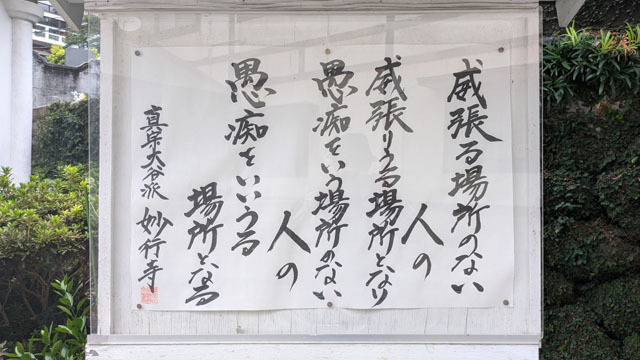 威張る場所のない
人の
威張りうる場所となり
愚痴をいう場所のない
人の
愚痴をいいうる
場所となる
真宗大谷派 妙行寺